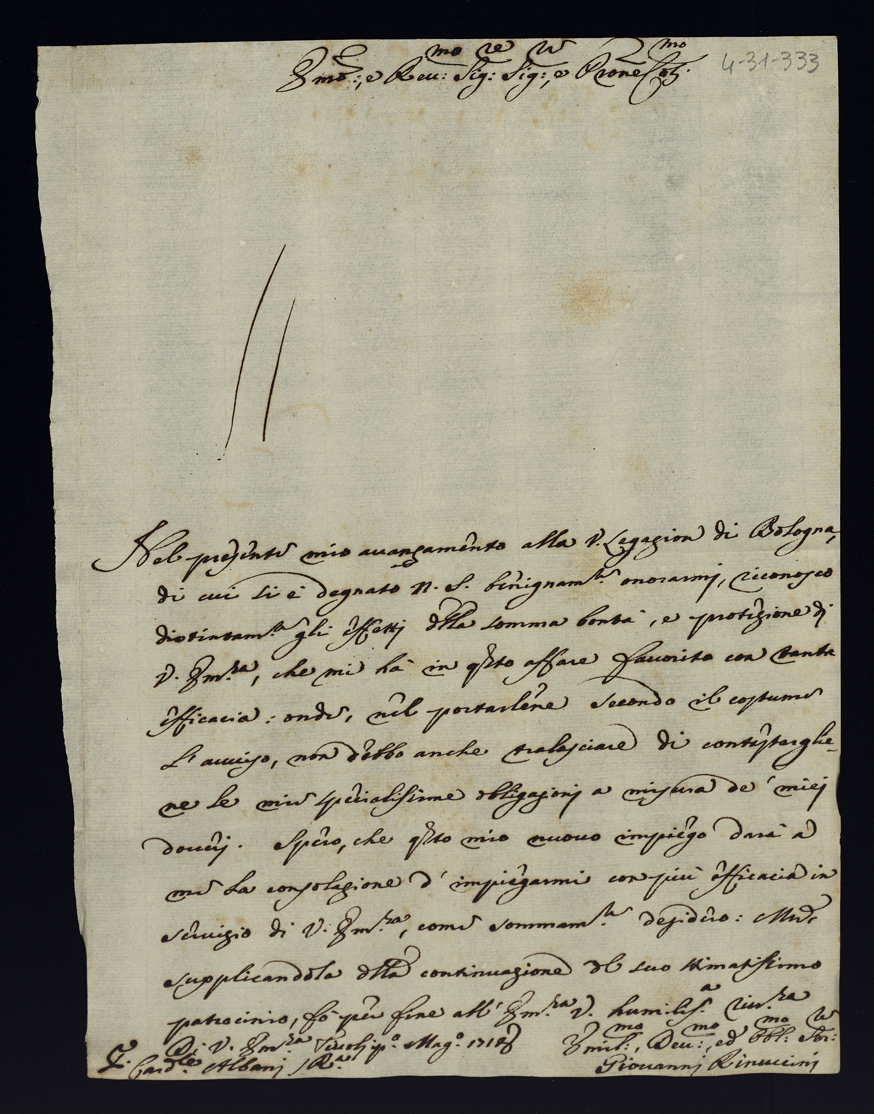 Em̃o:, e Reu:mo Sig:re Sig:r, e Prone Col:mo
4-31-333
Nel presente mio auanzamento alla V. Legazion di Bologna,
di cui si è degnato N. S. benignam.te onorarmi, riconosco
distintam.te gli effetti dlla somma bontà, e protezione di
V. Em.za, che mi hà in qsto affare fauorito con tanta
efficacia: onde, nel portarlene secondo il costume
l'auuiso, non debbo anche tralasciare di contestarglie-
ne le mie specialissime obligazioni a misura de' miei
doueri. Spero, che qsto mio nuouo impiego darà à
me la consolazione d'impiegarmi con più efficacia in
seruizio di V. Em.za, come sommam.te desidero: Mntre
supplicandola dlla continuazione del suo stimatissimo
patrocinio, fò per fine all' Em.za V. humiliss.a riu.za
Di V. Em.za Tiuoli p.o Mag.o 1718
Umil:mo, Deu:mo, ed Obbl:mo Ser:r
S.r Card.le Albani / R.a
Giouanni Rinuccini